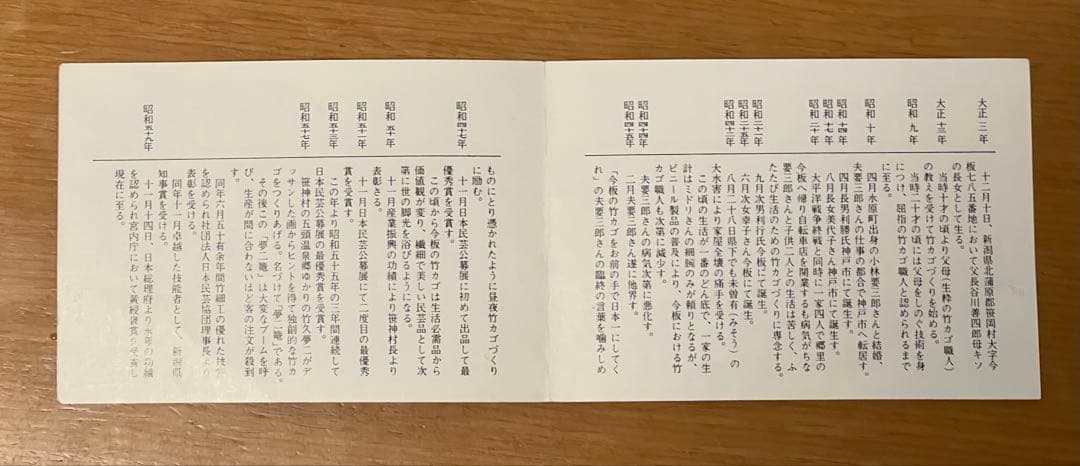 大正三年
大正十三年
昭和九年
昭和十年
昭和十四年
昭和十七年
昭和二十年
昭和二十一年
昭和二十五年
昭和四十三年
昭和四十四年
昭和四十五年
十二月十日、新潟県北蒲原郡笹岡村大字今
板七八五番地において父長谷川善四郎母キソ
の長女として生る。
当時十才の頃より父母(生粋の竹カゴ職人)
の教えを受けて竹カゴづくりを始める。
当時二十才の頃には父母をしのぐ技術を身
につけ、屈指の竹カゴ職人と認められるまで
に至る。
四月水原町出身の小林要三郎さんと結婚、
夫要三郎さんの仕事の都合で神戸市へ転居す。
四月長男利勝氏神戸市にて誕生す。
八月長女美代子さん神戸市にて誕生す。
太平洋戦争終戦と同時に一家四人で郷里の
今板へ帰り自転車店を開業するも病気がちな
要三郎さんと子供二人との生活は苦しく、ふ
たたび生活のための竹カゴづくりに専念する。
九月次男利行氏今板にて誕生。
六月次女幸子さん今板にて誕生。
八月二十八日県下でも未曽有(みぞう)の
大水害により家屋全壊の痛手を受ける。
この頃の生活が一番のどん底で、一家の生
計はミドリさんの細腕のみが頼りとなるが、
ビニール製品の普及により、今板における竹
カゴ職人も次第に減少す。
夫要三郎さんの病気次第に悪化す。
二月夫要三郎さん遂に他界す。
「今板の竹カゴをお前の手で日本一にしてく
れ」の夫要三郎さんの臨終の言葉を噛みしめ
昭和四十七年
昭和五十年
昭和五十一年
昭和五十三年
昭和五十七年
昭和五十九年
ものにとり憑かれたように昼夜竹カゴづくり
に励む。
十一月日本民芸公募展に初めて出品して最
優秀賞を受賞す。
この頃から今板の竹カゴは生活必需品から
価値観が変り、繊細で美しい民芸品として次
第に世の脚光を浴びるようになる。
十一月産業振興の功績により笹神村長より
表彰さる。
十一月日本民芸公募展にて二度目の最優秀
賞を受賞す。
この年より昭和五十五年の三年間連続して
日本民芸公募展の最優秀賞を受賞す。
笹神村の五頭温泉郷ゆかりの竹久夢二がデ
ッサンした画からヒントを得て独創的な竹カ
ゴをつくりあげる。名づけて「夢二籠」である。
その後この「夢二籠」は大変なブームを呼
び、生産が間に合わないほど客の注文が殺到
す。
同年六月五十有余年間竹細工の優れた技術
を認められ社団法人日本民芸協団理事長より
表彰を受ける。
同年十一月卓越した技能者として、新潟県
知事賞を受ける。
十一月十四日、日本総理府より永年の功績
を認められ宮内庁において黄綬褒賞を受賞し
現在に至る。